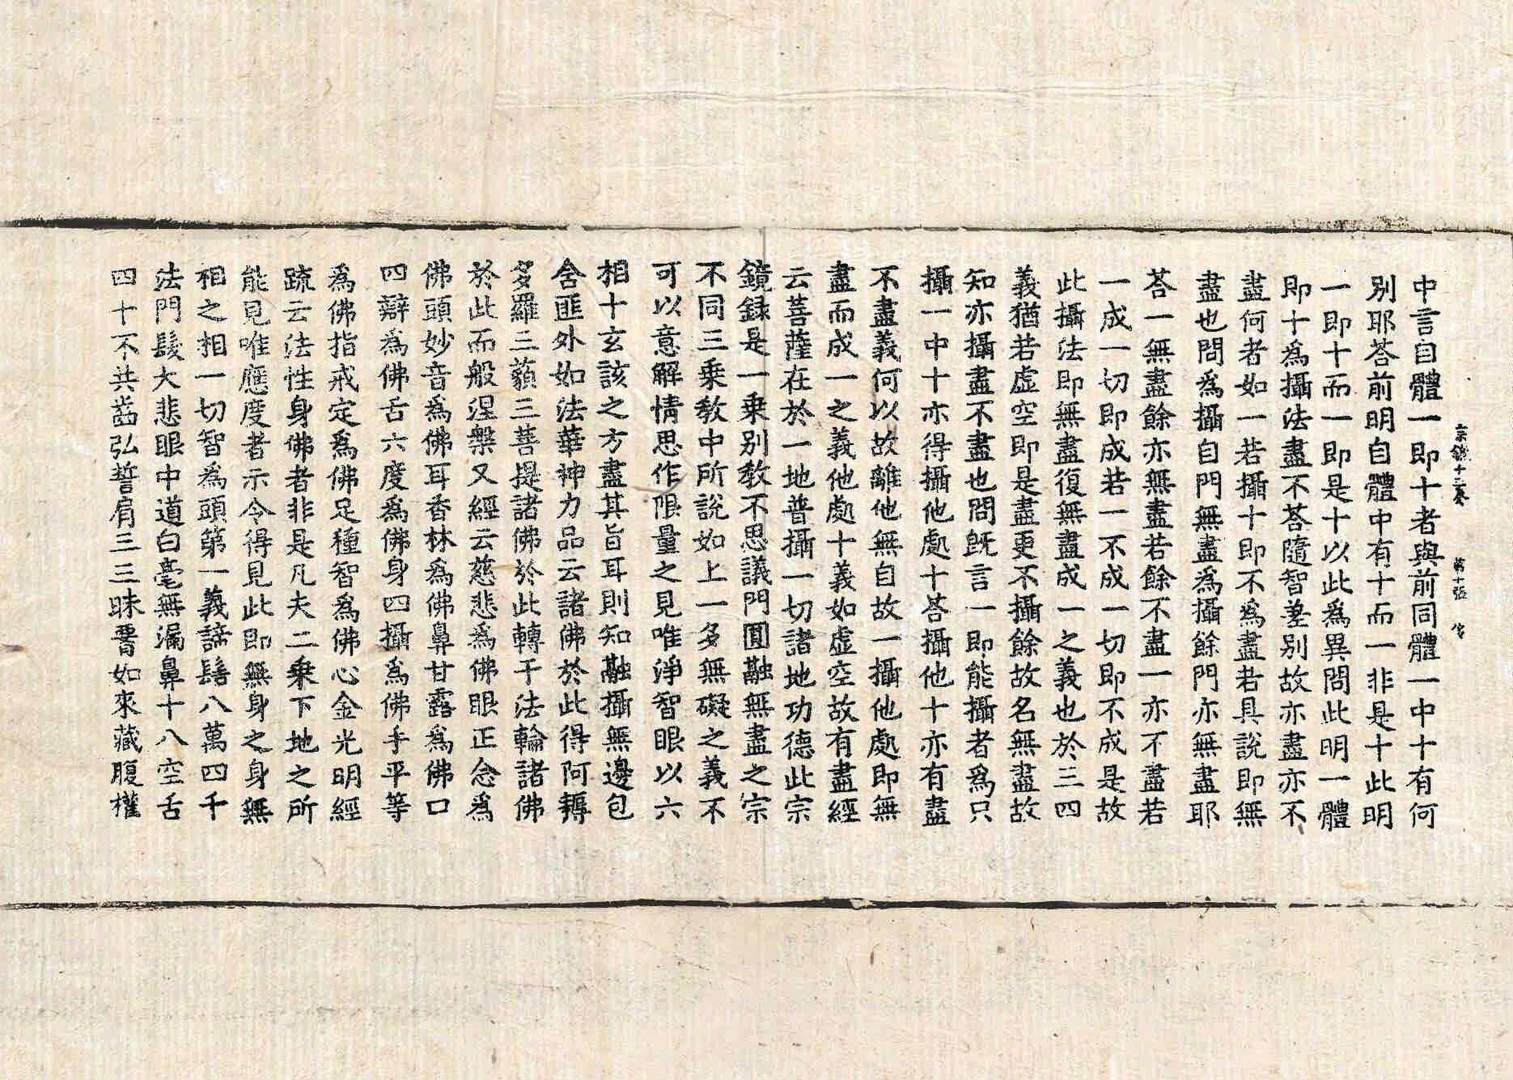 宗鏡十二卷 第十張 宮
中言自體一即十者與前同體一中十有何
別耶荅前明自體中有十而一非是十此明
一即十而一即是十以此為異問此明一體
即十為攝法盡不荅隨智差別故亦盡亦不
盡何者如一若攝十即不為盡若具說即無
盡也問為攝自門無盡為攝餘門亦無盡耶
荅一無盡餘亦無盡若餘不盡一亦不盡若
一成一切即成若一不成一切即不成是故
此攝法即無盡復無盡成一之義也於三四
義猶若虛空即是盡更不攝餘故名無盡故
知亦攝盡不盡也問旣言一即能攝者為只
攝一中十亦得攝他處十荅攝他十亦有盡
不盡義何以故離他無自故一攝他處即無
盡而成一之義他處十義如虛空故有盡經
云菩薩在於一地普攝一切諸地功德此宗
鏡録是一乗別教不思議門圓融無盡之宗
不同三乗教中所說如上一多無礙之義不
可以意解情思作限量之見唯淨智眼以六
相十玄該之方盡其旨耳則知融攝無邊包
含匪外如法華神力品云諸佛於此得阿耨
多羅三藐三菩提諸佛於此轉于法輪諸佛
於此而般涅槃又經云慈悲為佛眼正念為
佛頭妙音為佛耳香林為佛鼻甘露為佛口
四辯為佛舌六度為佛身四攝為佛手平等
為佛指戒定為佛足種智為佛心金光明經
疏云法性身佛者非是凡夫二乗下地之所
能見唯應度者示令得見此即無身之身無
相之相一切智為頭第一義諦髻八萬四千
法門髮大悲眼中道白毫無漏鼻十八空舌
四十不共齒弘誓肩三三昧𦝫如來藏腹權